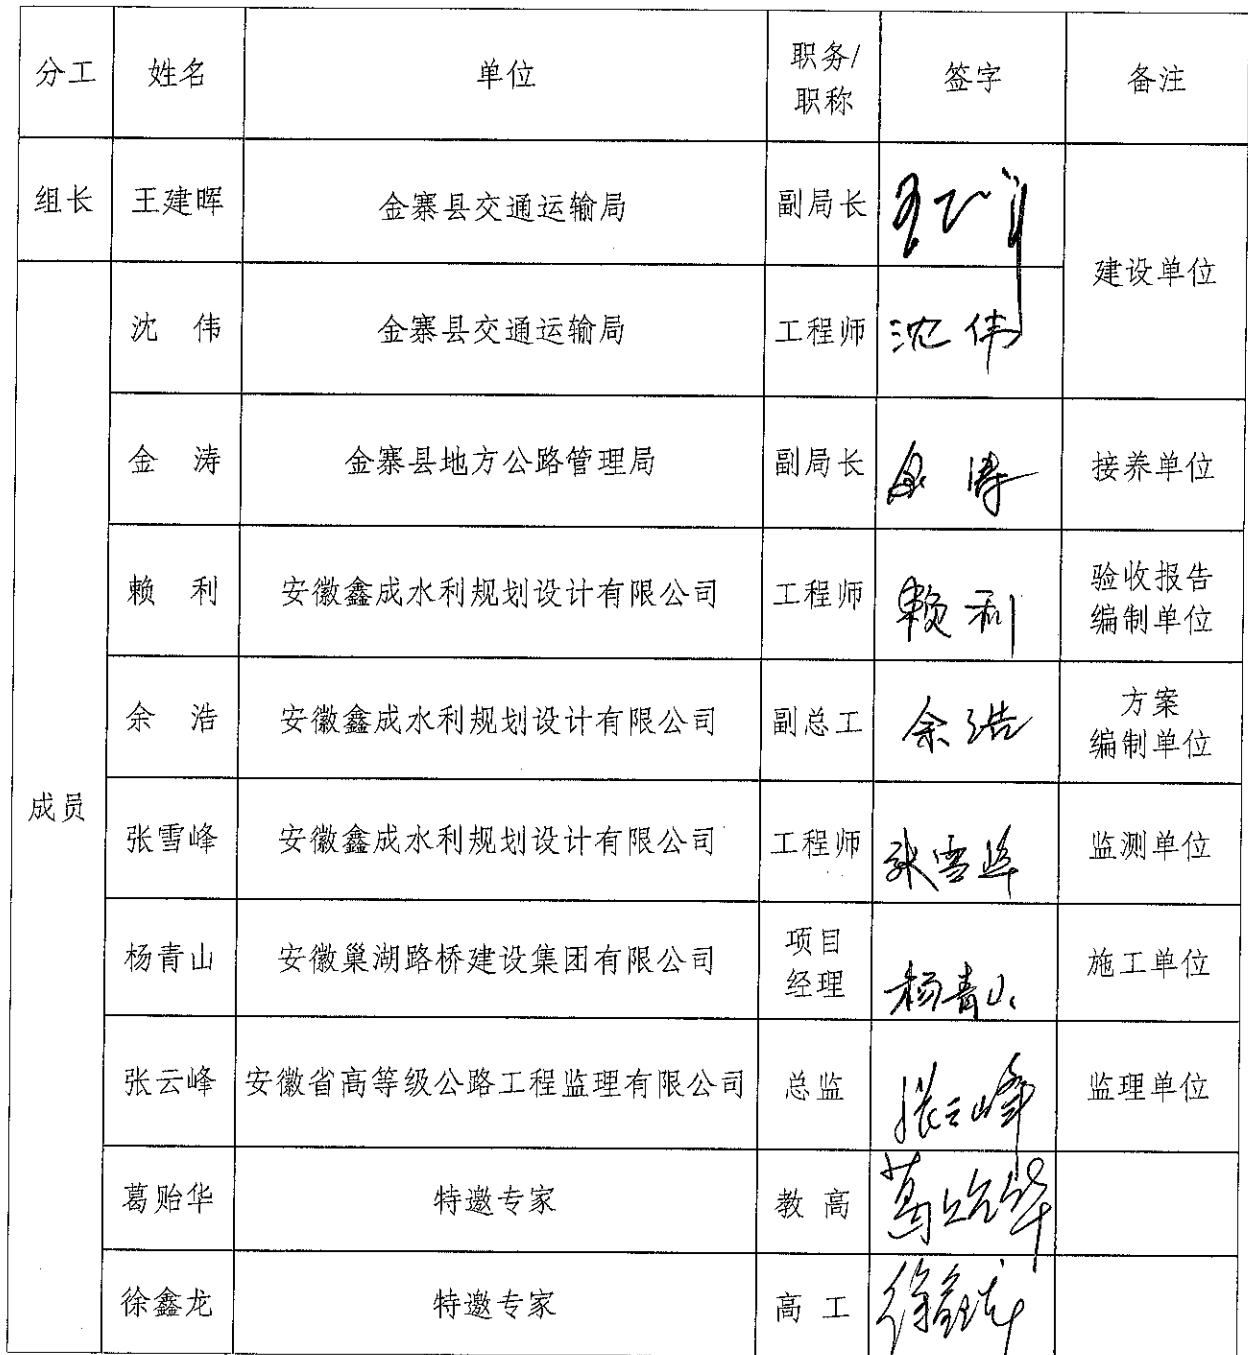 分工 姓名 单位 职务/职称 签字 备注
组长 王建晖 金寨县交通运输局 副局长 建设单位
成员 沈伟 金寨县交通运输局 工程师 沈伟
金涛 金寨县地方公路管理局 副局长 金涛 接养单位
赖利 安徽鑫成水利规划设计有限公司 工程师 赖利 验收报告编制单位
余浩 安徽鑫成水利规划设计有限公司 副总工 余浩 方案编制单位
张雪峰 安徽鑫成水利规划设计有限公司 工程师 张雪峰 监测单位
杨青山 安徽巢湖路桥建设集团有限公司 项目经理 杨青山 施工单位
张云峰 安徽省高等级公路工程监理有限公司 总监 张云峰 监理单位
葛贻华 特邀专家 教高 葛贻华
徐鑫龙 特邀专家 高工 徐鑫龙